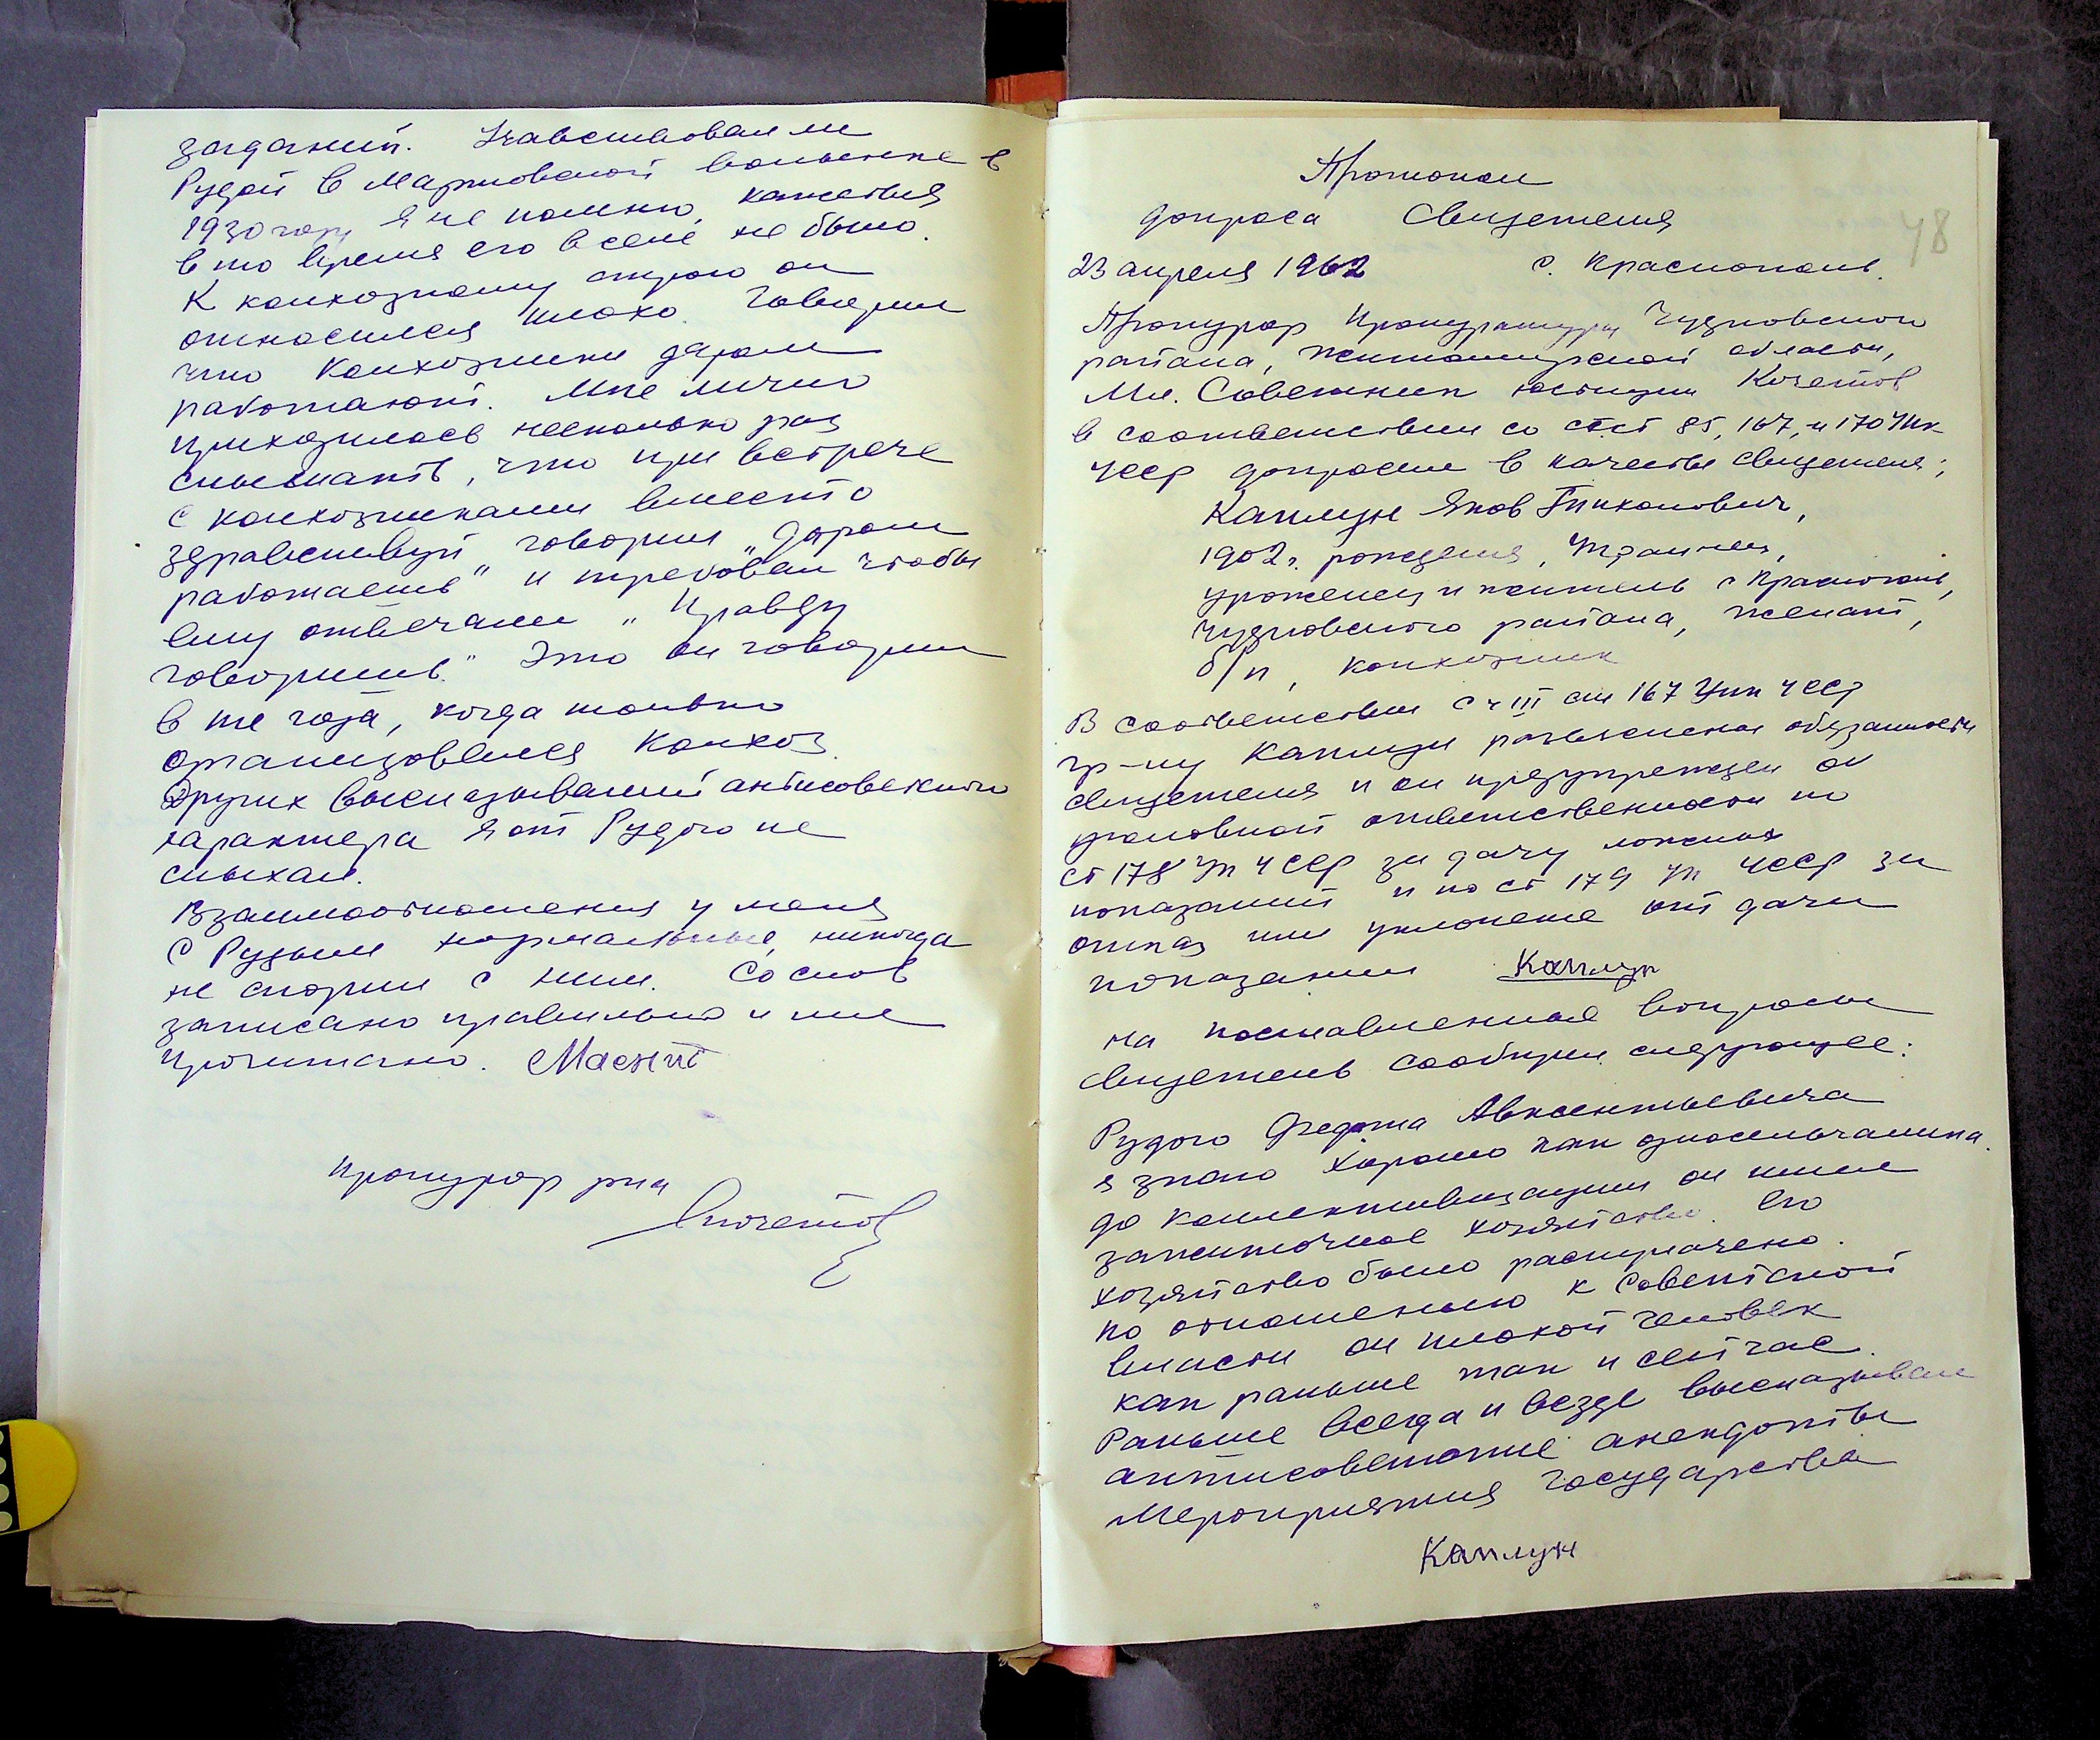 заданий. Учавствовал ли
Рудой в Мартовской волынке в
1930 году я не помню, кажется
в то время его в селе не было.
К колхозному строю он
относился плохо. Говорил
что колхозники даром
работают. Мне лично
приходилось несколько раз
слышать, что при встрече
с колхозниками вместо
здравствуй говорил „даром
работаешь" и требовал чтобы
ему отвечали „Правду
говоришь." Это он говорил
в те года, когда только
организовался колхоз.
Других высказываний антисоветского
характера я от Рудого не
слыхал.
Взаимоотношения у меня
с Рудым нормальные, никогда
не спорил с ним. Со слов
записано правильно и мне
прочитано.
Прокурор р-на
Кочетов
48
Протокол
допроса Свидетеля
23 апреля 1962 с. Краснополь.
Прокурор Прокуратуры Чудновского
района, Житомирской области,
Мл. Советник юстиции Кочетов
в соответствии со ст.ст 85, 167, и 170 УПК
УССР допросил в качестве свидетеля;
Каплун Яков Тихонович,
1902 г. рождения, Украинец,
уроженец и житель с Краснополь,
Чудновского района, женат,
б/п, колхозник
В соответствии с ч III ст 167 УПК УССР
гр-ну Каплун разъяснены обязанности
свидетеля и он предупрежден об
уголовной ответственности по
ст 178 УК УССР за дачу ложных
показаний и по ст 179 УК УССР за
отказ или уклонение от дачи
показания Каплун
На поставленные вопросы
свидетель сообщил следующее:
Рудого Федота Авксентьевича
я знаю хорошо как односельчанина.
до коллективизации он имел
зажиточное хозяйство. Его
хозяйство было раскулачено.
По отношению к Советской
власти он плохой человек
как раньше так и сейчас.
Раньше всегда и везде высказывал
антисоветские анекдоты
Мероприятия государства
Каплун